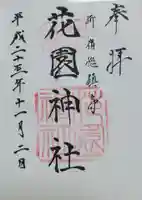 奉拝
新宿総鎮守
花園神社
平成二十三年十一月二日